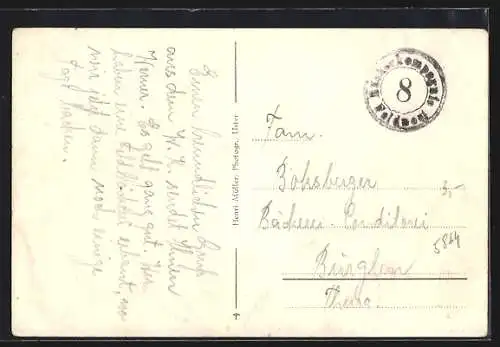 Einen freundlichen Gruß
aus dem W. K. sendet Ihnen
Werner. Es geht ganz gut. Wir
haben eine Feldbäckerei erbaut, wo
wir jetzt dann noch einige
Tage backen.
Henri Müller, Photogr., Uster
4
8
Fam.
Bohsberger
Bäckerei-Conditorei
Bürglen
3,-
5864